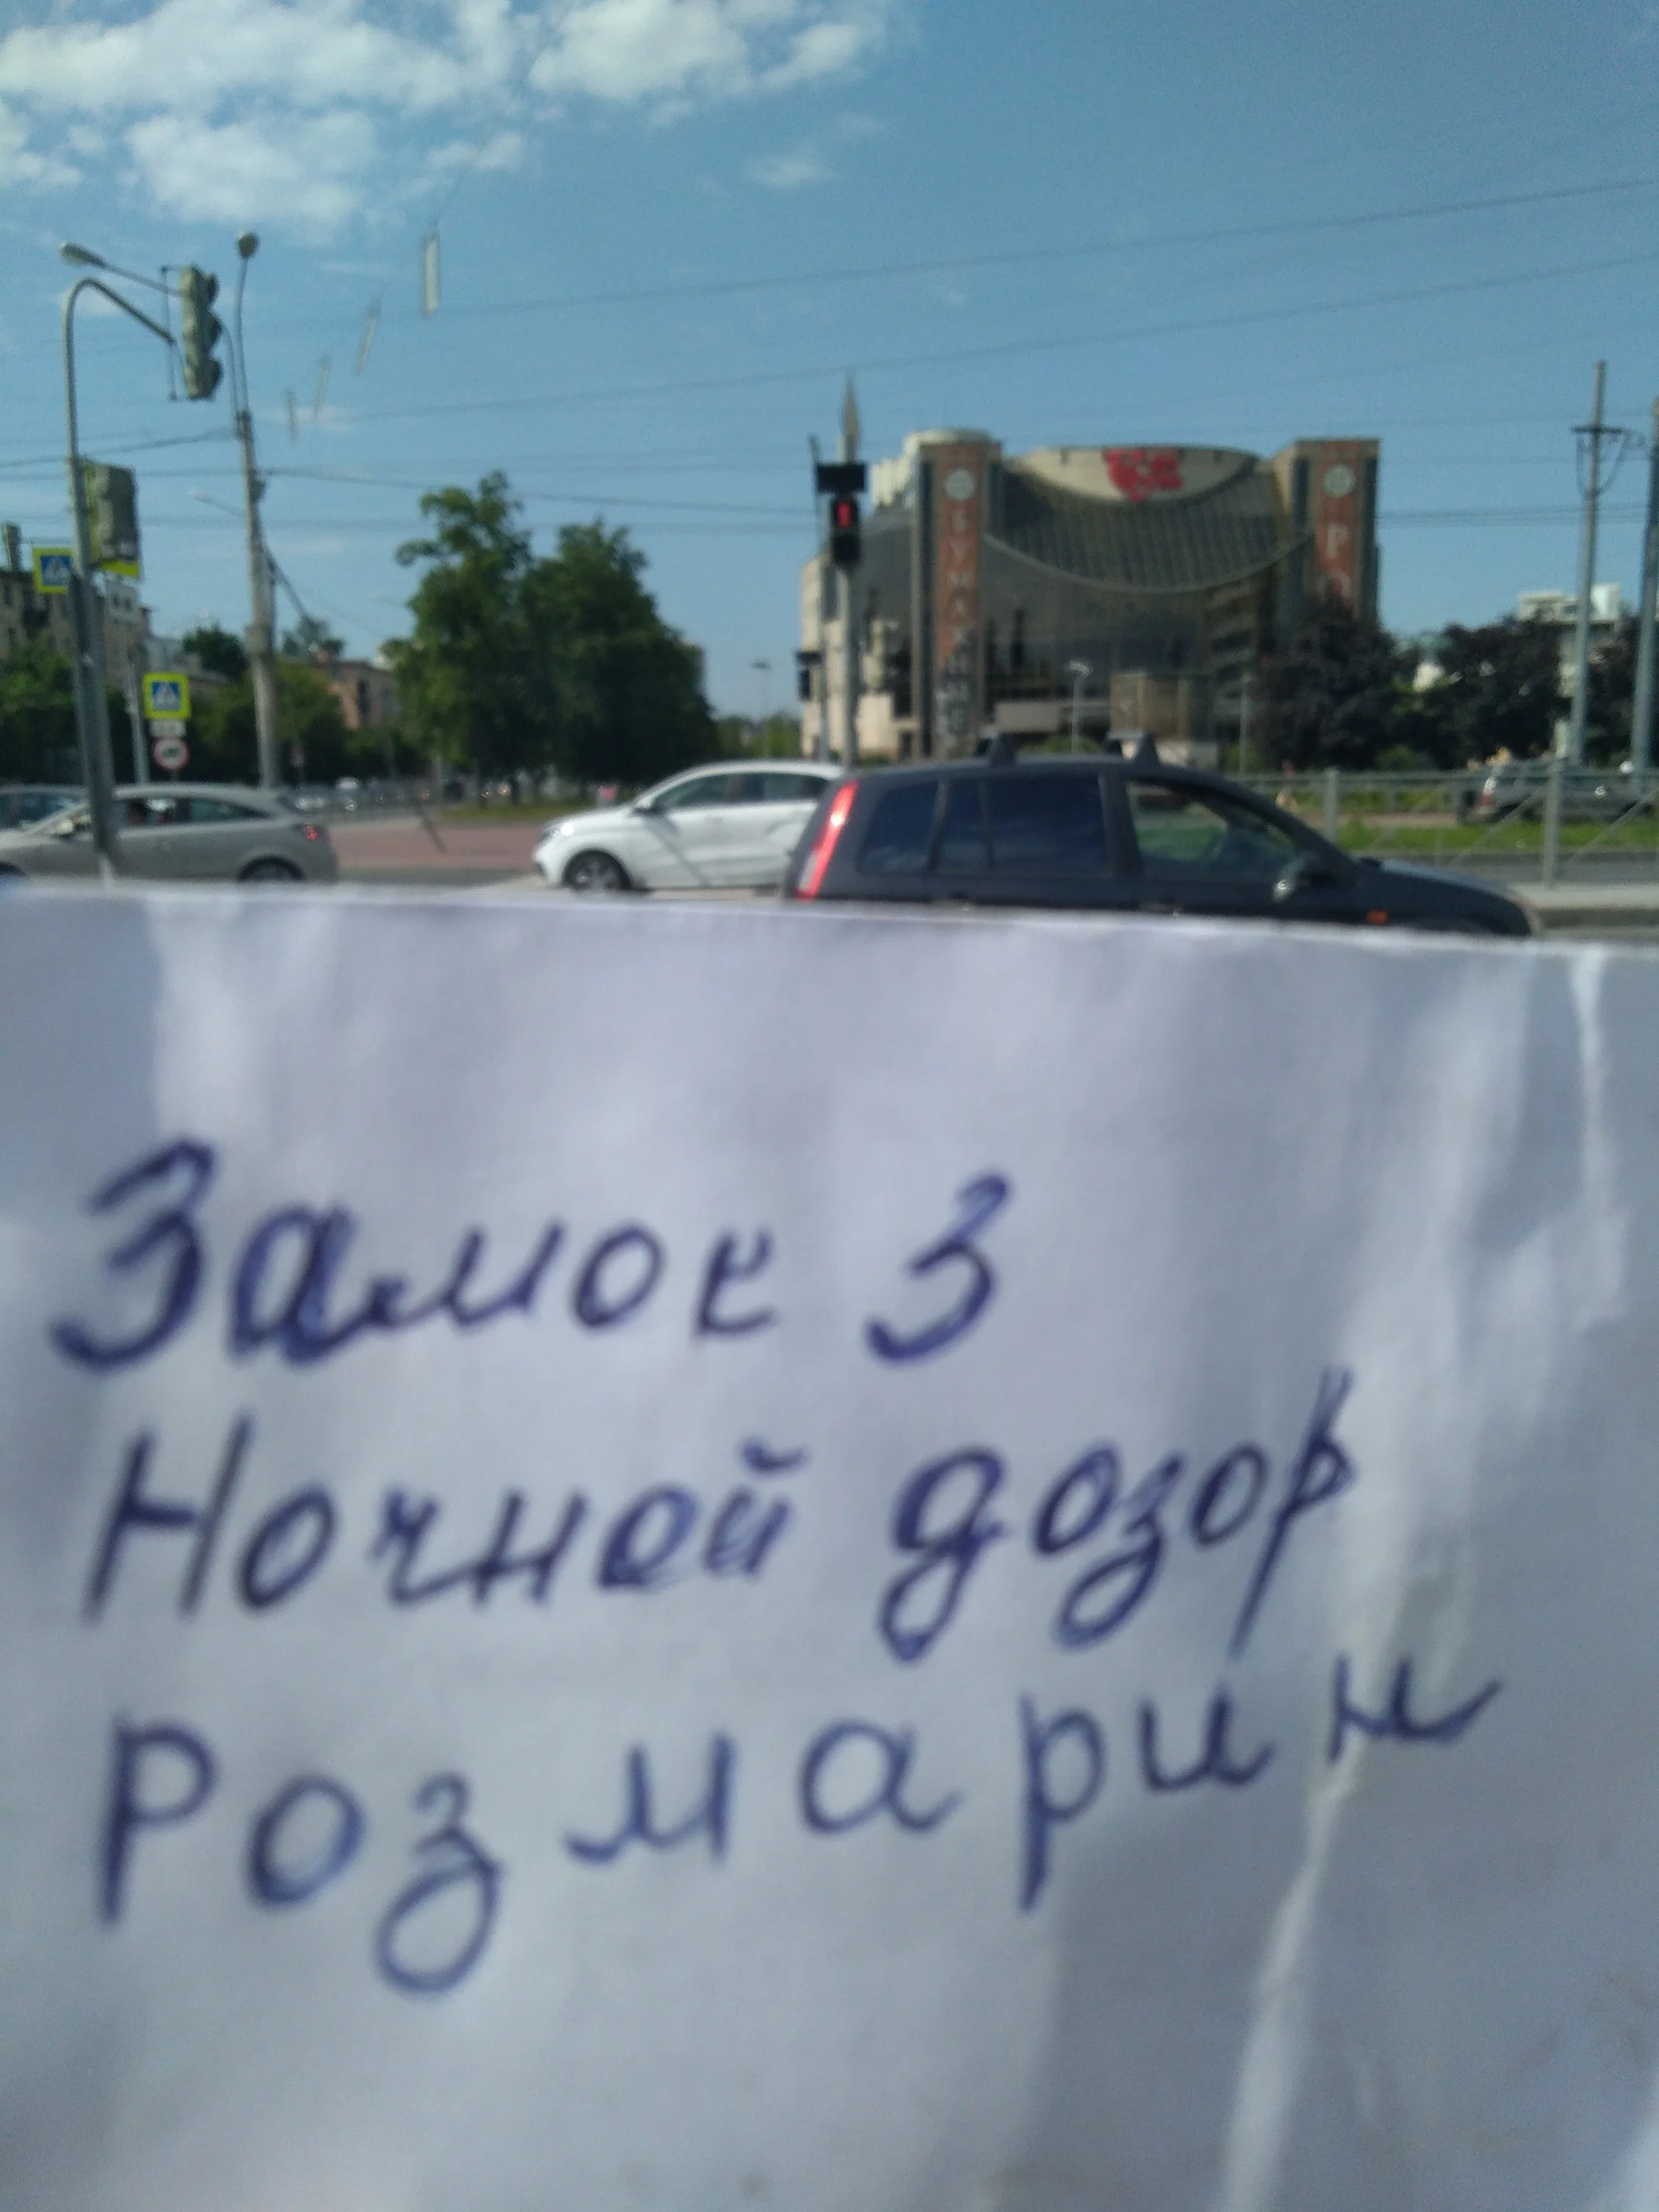 Замок 3
Ночной дозор
Розмарин